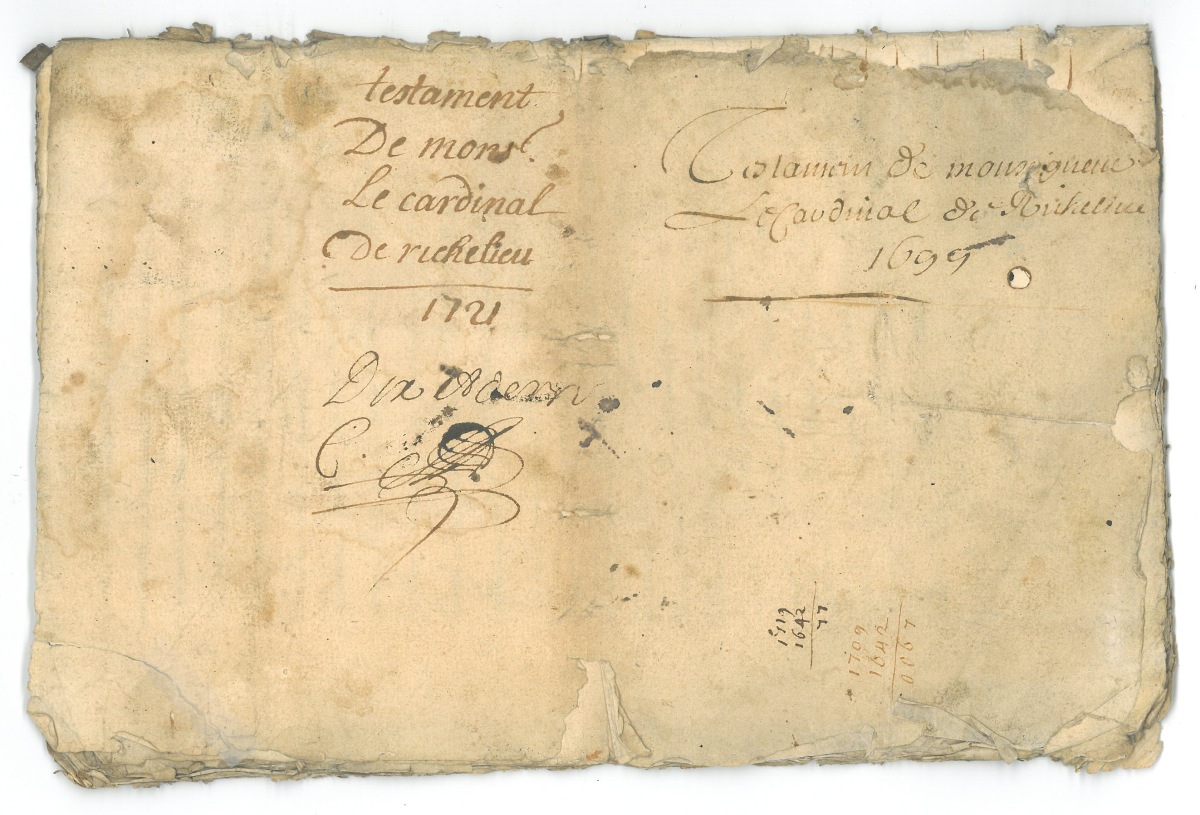 testament
De monsr.
Le cardinal
De richelieu
1721
Dix et
C.
Testamen de monseigneur
Le Cardinal de Richelieu
1699
1719
1642
77
1709
1642
0067